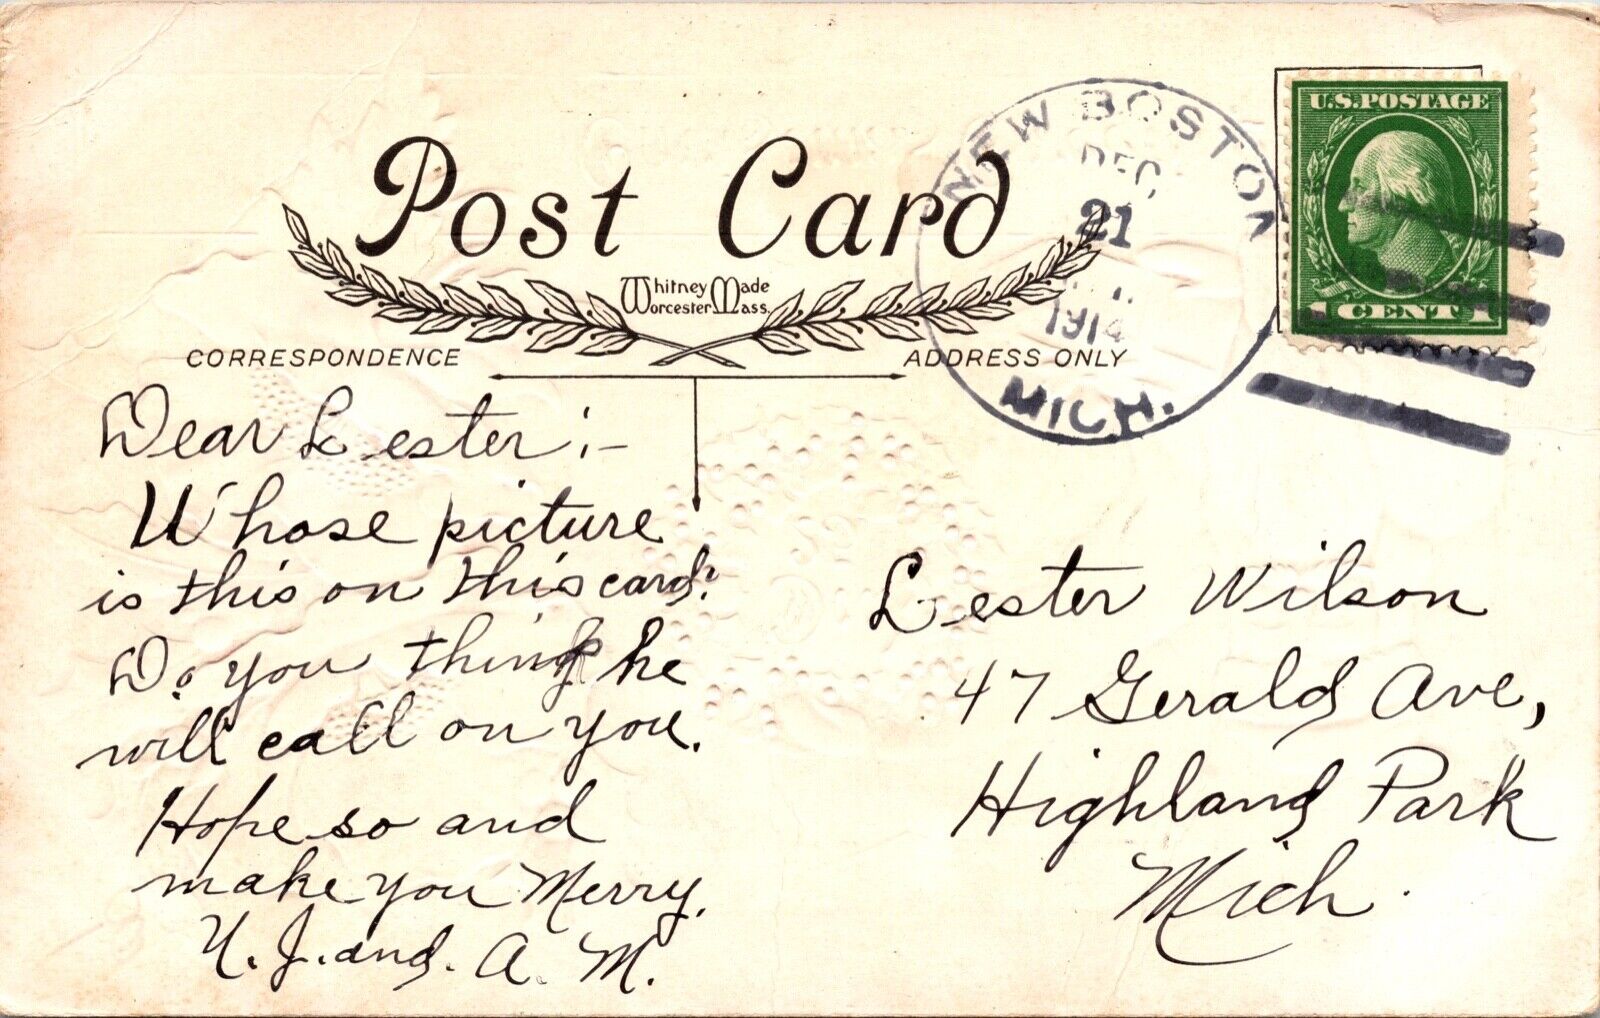 Post Card
Whitney Made
Worcester Mass.
CORRESPONDENCE
ADDRESS ONLY
NEW BOSTON
DEC
21
1914
MICH.
U.S.POSTAGE
1 CENT 1
Dear Lester:-
Whose picture
is this on this card?
Do you think he
will call on you.
Hope so and
make you Merry.
U. J. and. A. M.
Lester Wilson
47 Gerald Ave,
Highland Park
Mich.